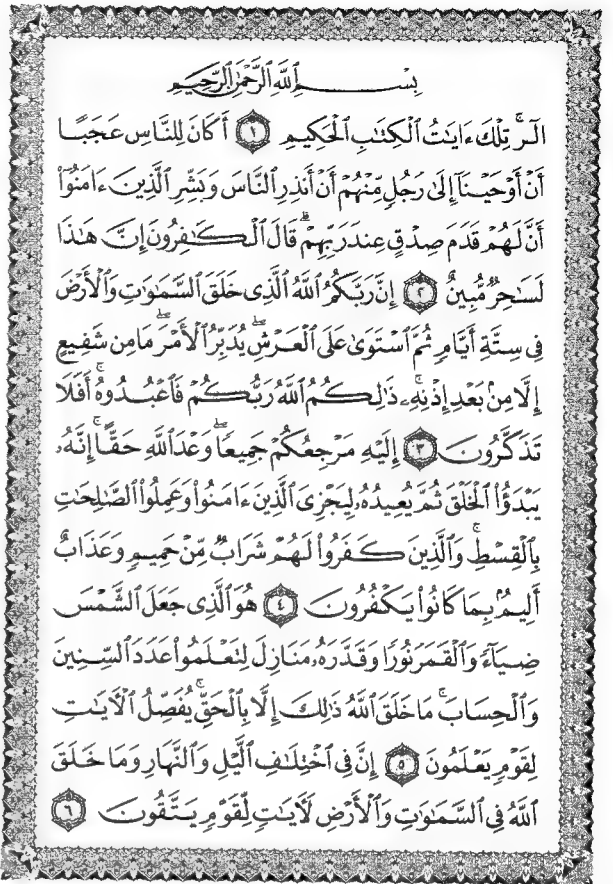 بِسْمِ ٱللَّهِ ٱلرَّحْمَٰنِ ٱلرَّحِيمِ
الٓرۚ تِلْكَ ءَايَٰتُ ٱلْكِتَٰبِ ٱلْحَكِيمِ ١ أَكَانَ لِلنَّاسِ عَجَبًا
أَنْ أَوْحَيْنَآ إِلَىٰ رَجُلٍ مِّنْهُمْ أَنْ أَنذِرِ ٱلنَّاسَ وَبَشِّرِ ٱلَّذِينَ ءَامَنُوٓا۟
أَنَّ لَهُمْ قَدَمَ صِدْقٍ عِندَ رَبِّهِمْۗ قَالَ ٱلْكَٰفِرُونَ إِنَّ هَٰذَا
لَسَٰحِرٌ مُّبِينٌ ٢ إِنَّ رَبَّكُمُ ٱللَّهُ ٱلَّذِى خَلَقَ ٱلسَّمَٰوَٰتِ وَٱلْأَرْضَ
فِى سِتَّةِ أَيَّامٍ ثُمَّ ٱسْتَوَىٰ عَلَى ٱلْعَرْشِۖ يُدَبِّرُ ٱلْأَمْرَۖ مَا مِن شَفِيعٍ
إِلَّا مِنۢ بَعْدِ إِذْنِهِۦۚ ذَٰلِكُمُ ٱللَّهُ رَبُّكُمْ فَٱعْبُدُوهُۚ أَفَلَا
تَذَكَّرُونَ ٣ إِلَيْهِ مَرْجِعُكُمْ جَمِيعًاۖ وَعْدَ ٱللَّهِ حَقًّاۚ إِنَّهُۥ
يَبْدَؤُا۟ ٱلْخَلْقَ ثُمَّ يُعِيدُهُۥ لِيَجْزِىَ ٱلَّذِينَ ءَامَنُوا۟ وَعَمِلُوا۟ ٱلصَّٰلِحَٰتِ
بِٱلْقِسْطِۚ وَٱلَّذِينَ كَفَرُوا۟ لَهُمْ شَرَابٌ مِّنْ حَمِيمٍ وَعَذَابٌ
أَلِيمٌۢ بِمَا كَانُوا۟ يَكْفُرُونَ ٤ هُوَ ٱلَّذِى جَعَلَ ٱلشَّمْسَ
ضِيَآءً وَٱلْقَمَرَ نُورًا وَقَدَّرَهُۥ مَنَازِلَ لِتَعْلَمُوا۟ عَدَدَ ٱلسِّنِينَ
وَٱلْحِسَابَۚ مَا خَلَقَ ٱللَّهُ ذَٰلِكَ إِلَّا بِٱلْحَقِّۚ يُفَصِّلُ ٱلْءَايَٰتِ
لِقَوْمٍ يَعْلَمُونَ ٥ إِنَّ فِى ٱخْتِلَٰفِ ٱلَّيْلِ وَٱلنَّهَارِ وَمَا خَلَقَ
ٱللَّهُ فِى ٱلسَّمَٰوَٰتِ وَٱلْأَرْضِ لَءَايَٰتٍ لِّقَوْمٍ يَتَّقُونَ ٦